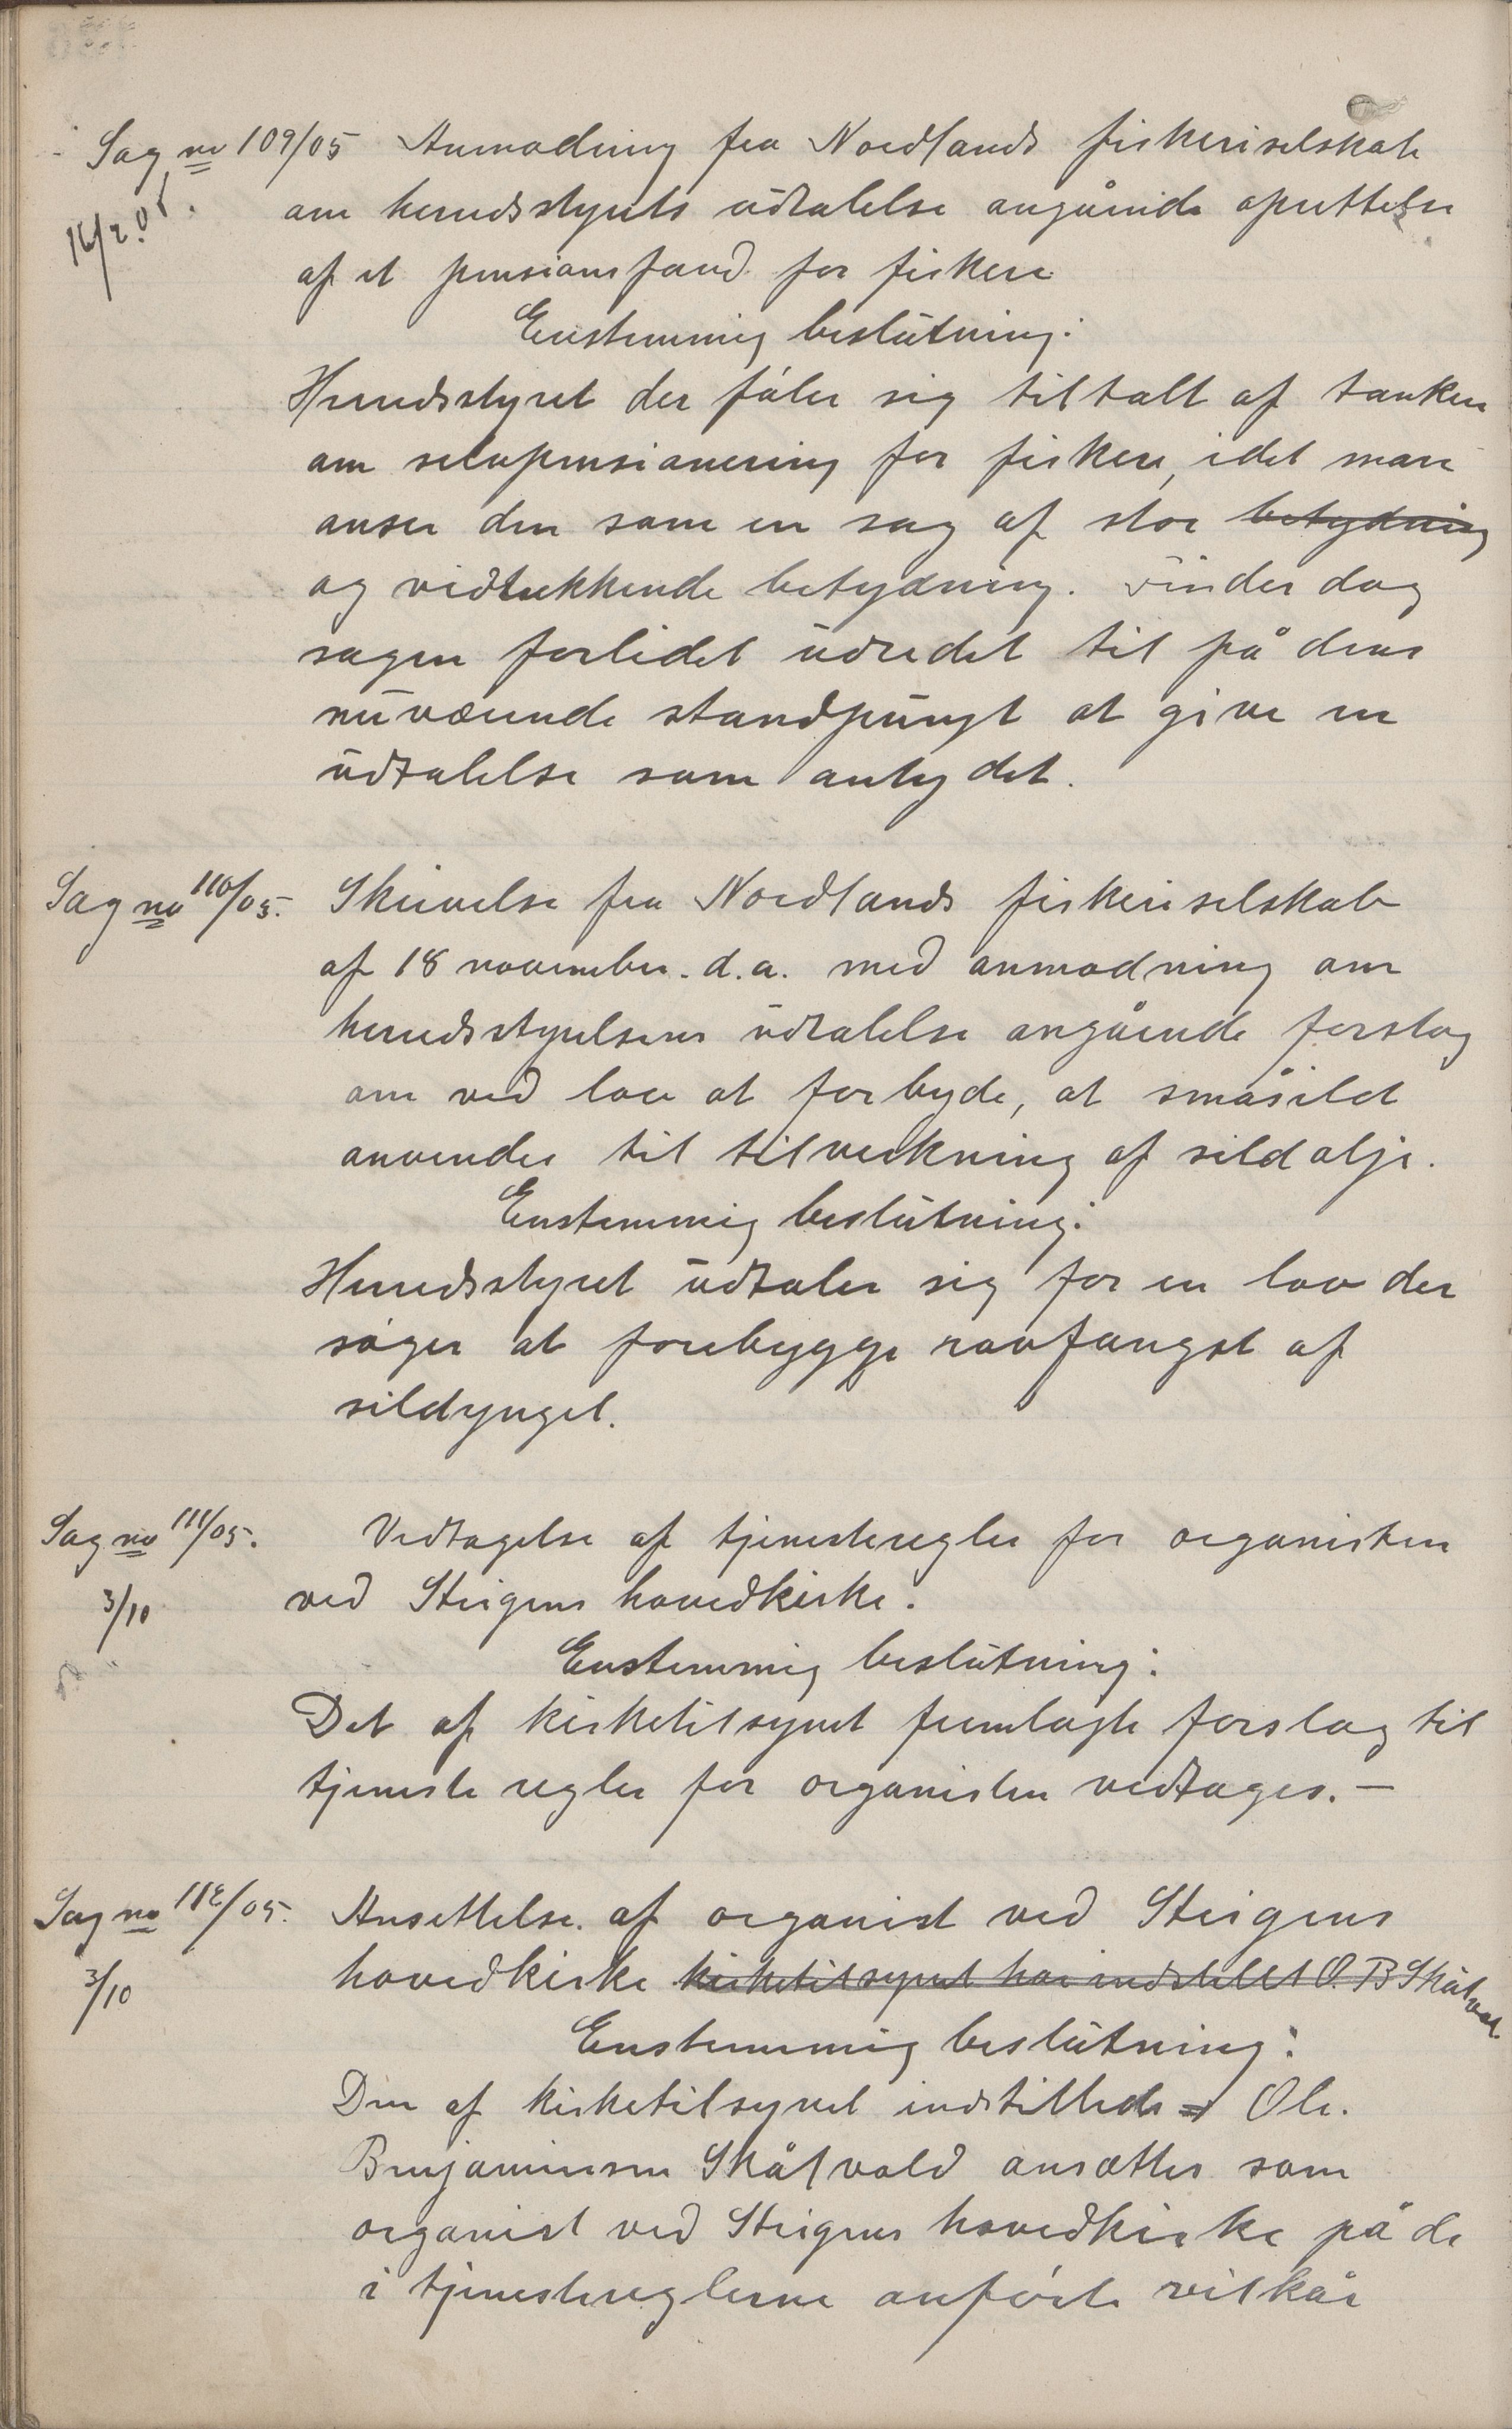 Sag no 109/05 Anmodning fra Nordlands fiskeriselskab
16/2.05.
om herredsstyrets udtalelse angående oprettelse
af et pensionsfond for fiskere
Enstemmig beslutning:
Herredsstyret der føler sig tiltalt af tanken
om selvpensionering for fiskere, idet man
anser den som en sag af stor betydning
og vidtrekkende betydning. Finder dog
sagen forlidet udredet til på dens
nuværende standpungt at give en
udtalelse som antydet.
Sag no 110/05. Skrivelse fra Nordlands fiskeriselskab
af 18 november. d.a. med anmodning om
herredsstyrelsens udtalelse angående forslag
om ved lov at forbyde, at småsild
anvendes til tilverkning af sildolje.
Enstemmig beslutning:
Herredsstyret udtaler sig for en lov der
søger at forebygge rovfangst af
sildyngel.
Sag no 111/05. Vedtagelse af tjenesteregler for organisten
3/10 ved Steigens hovedkirke.
Enstemmig beslutning:
Det af kirketilsynet fremlagte forslag til
tjeneste regler for organisten vedtages. —
Sag no 112/05. Ansettelse af organist ved Steigens
3/10 hovedkirke kirketilsynet har indstillet O. B Skålvol
Enstemmig beslutning:
Den af kirketilsynet indstillede Ole.
Benjaminsen Skålvold ansættes som
organist ved Steigens hovedkirke på de
i tjenestereglerne anførte vilkår